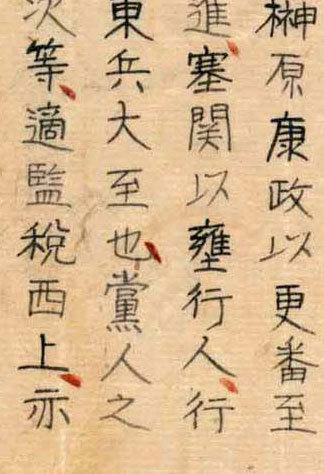 榊原康政以更番至
進塞関以壅行人行
東兵大至也黨人之
次等適監税西上亦